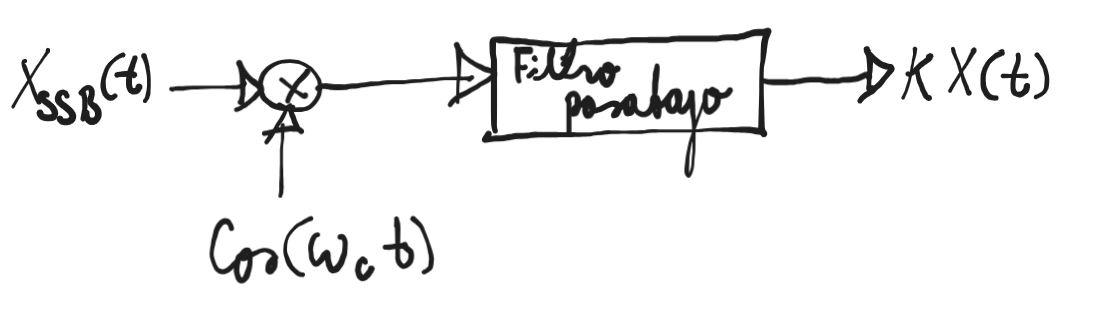 X_SSB(t)
X
Filtro
pasabajo
K X(t)
Cos(ω_c t)